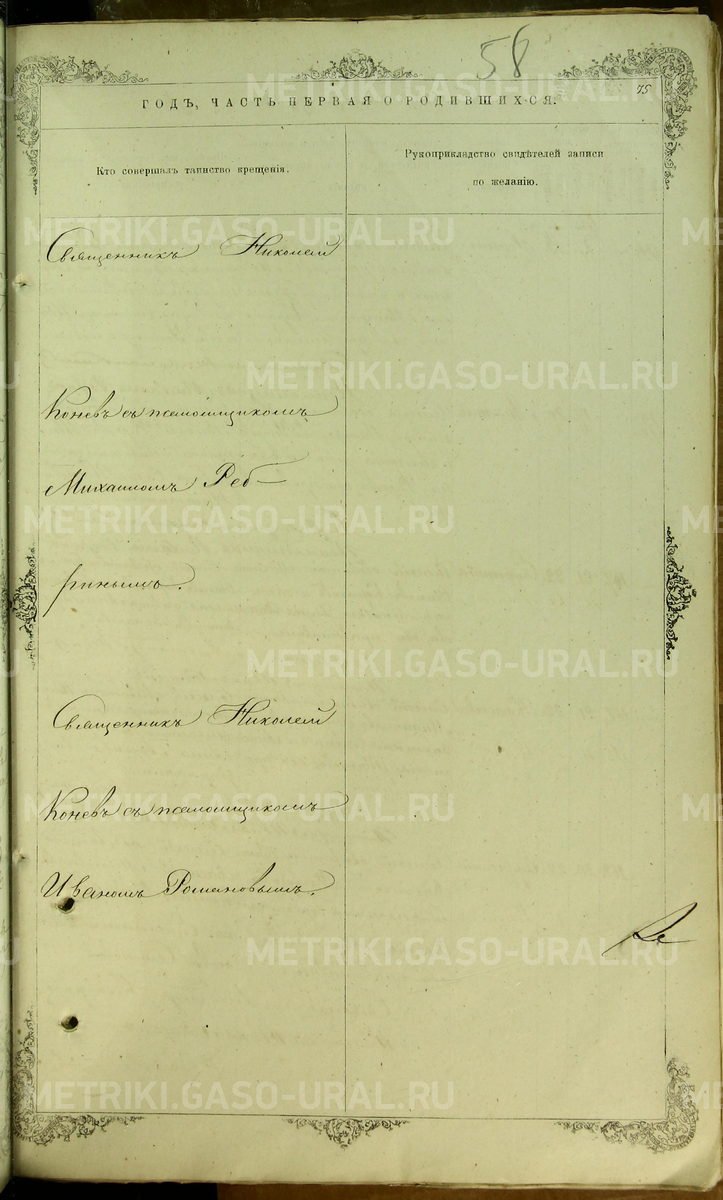 58
75
ГОДЪ, ЧАСТЬ ПЕРВАЯ О РОДИВШИХСЯ.
Кто совершалъ таинство крещенія.
Рукоприкладство свидѣтелей записи
по желанію.
Священникъ Николай
Коневъ съ псаломщикомъ
Михаиломъ Реб-
ринымъ.
Священникъ Николай
Коневъ съ псаломщикомъ
Иваномъ Романовымъ.
METRIKI.GASO-URAL.RU